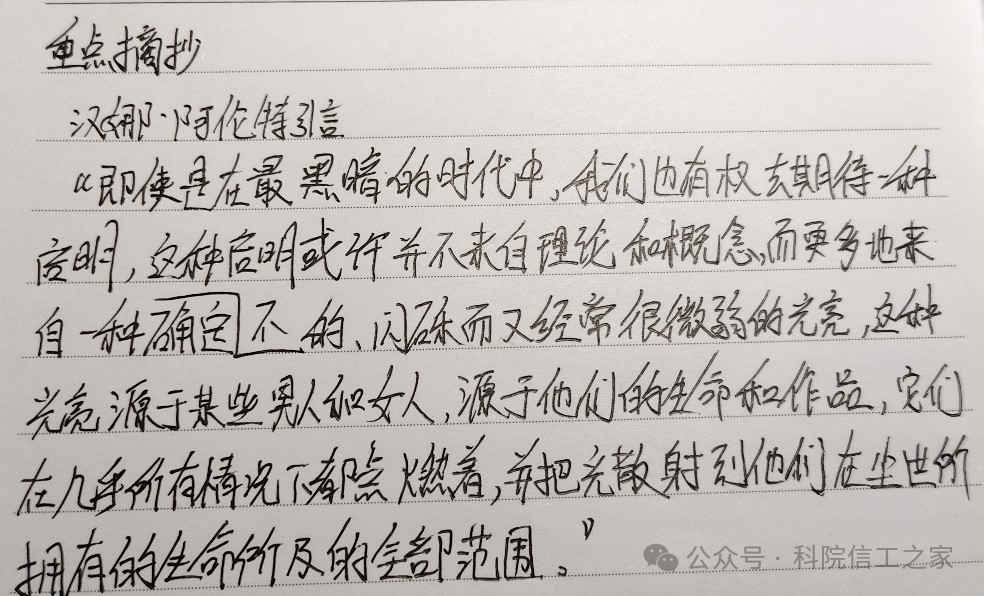 重点摘抄
汉娜·阿伦特引言
“即使是在最黑暗的时代中，我们也有权去期待一种
启明，这种启明或许并不来自理论和概念，而更多地来
自一种确定不的、闪烁而又经常很微弱的光亮，这种
光亮源于某些男人和女人，源于他们的生命和作品，它们
在几乎所有情况下都点燃着，并把光散射到他们在尘世所
拥有的生命所及的全部范围。”
公众号·科院信工之家